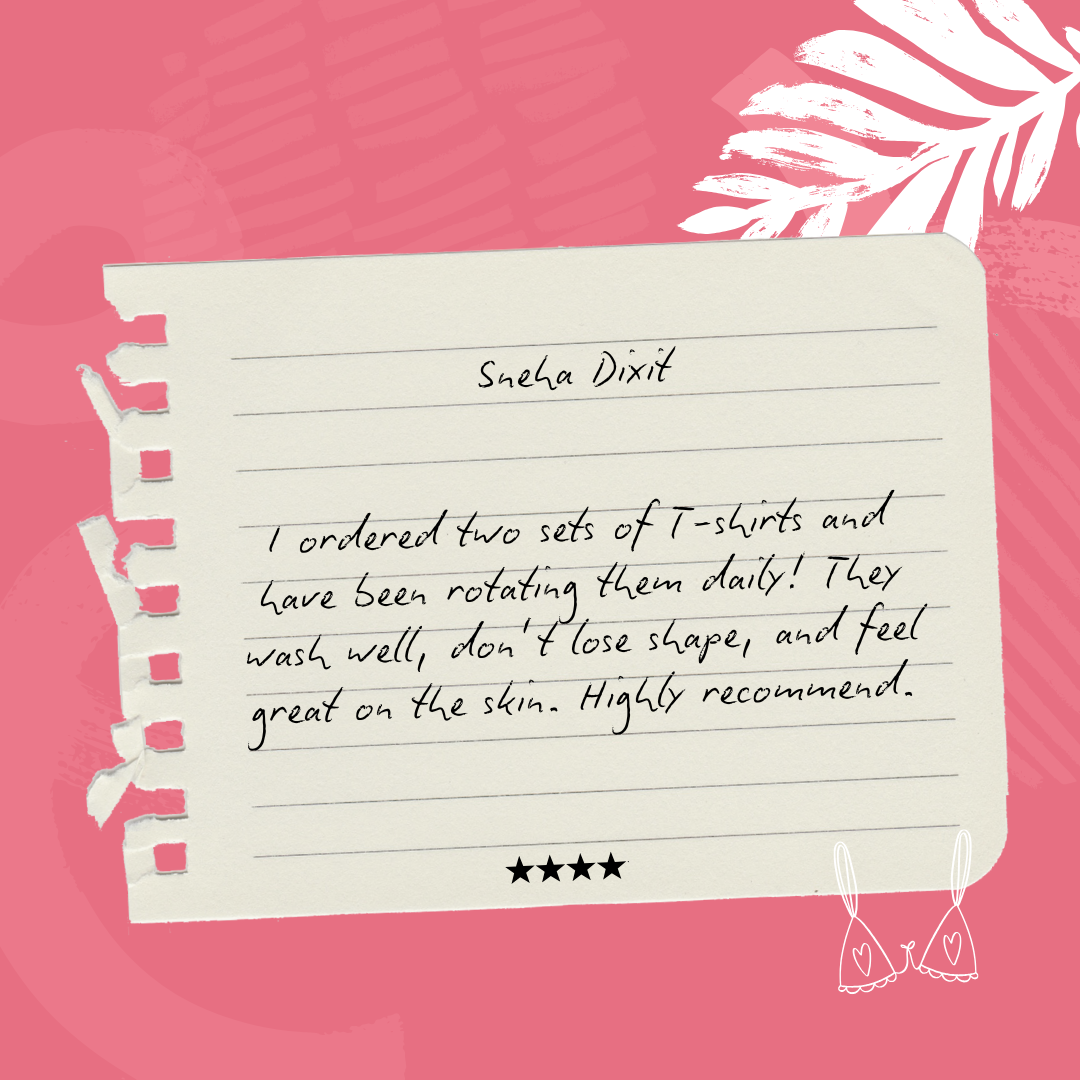 Sneha Dixit
I ordered two sets of T-shirts and
have been rotating them daily! They
wash well, don't lose shape, and feel
great on the skin. Highly recommend.
★★★★